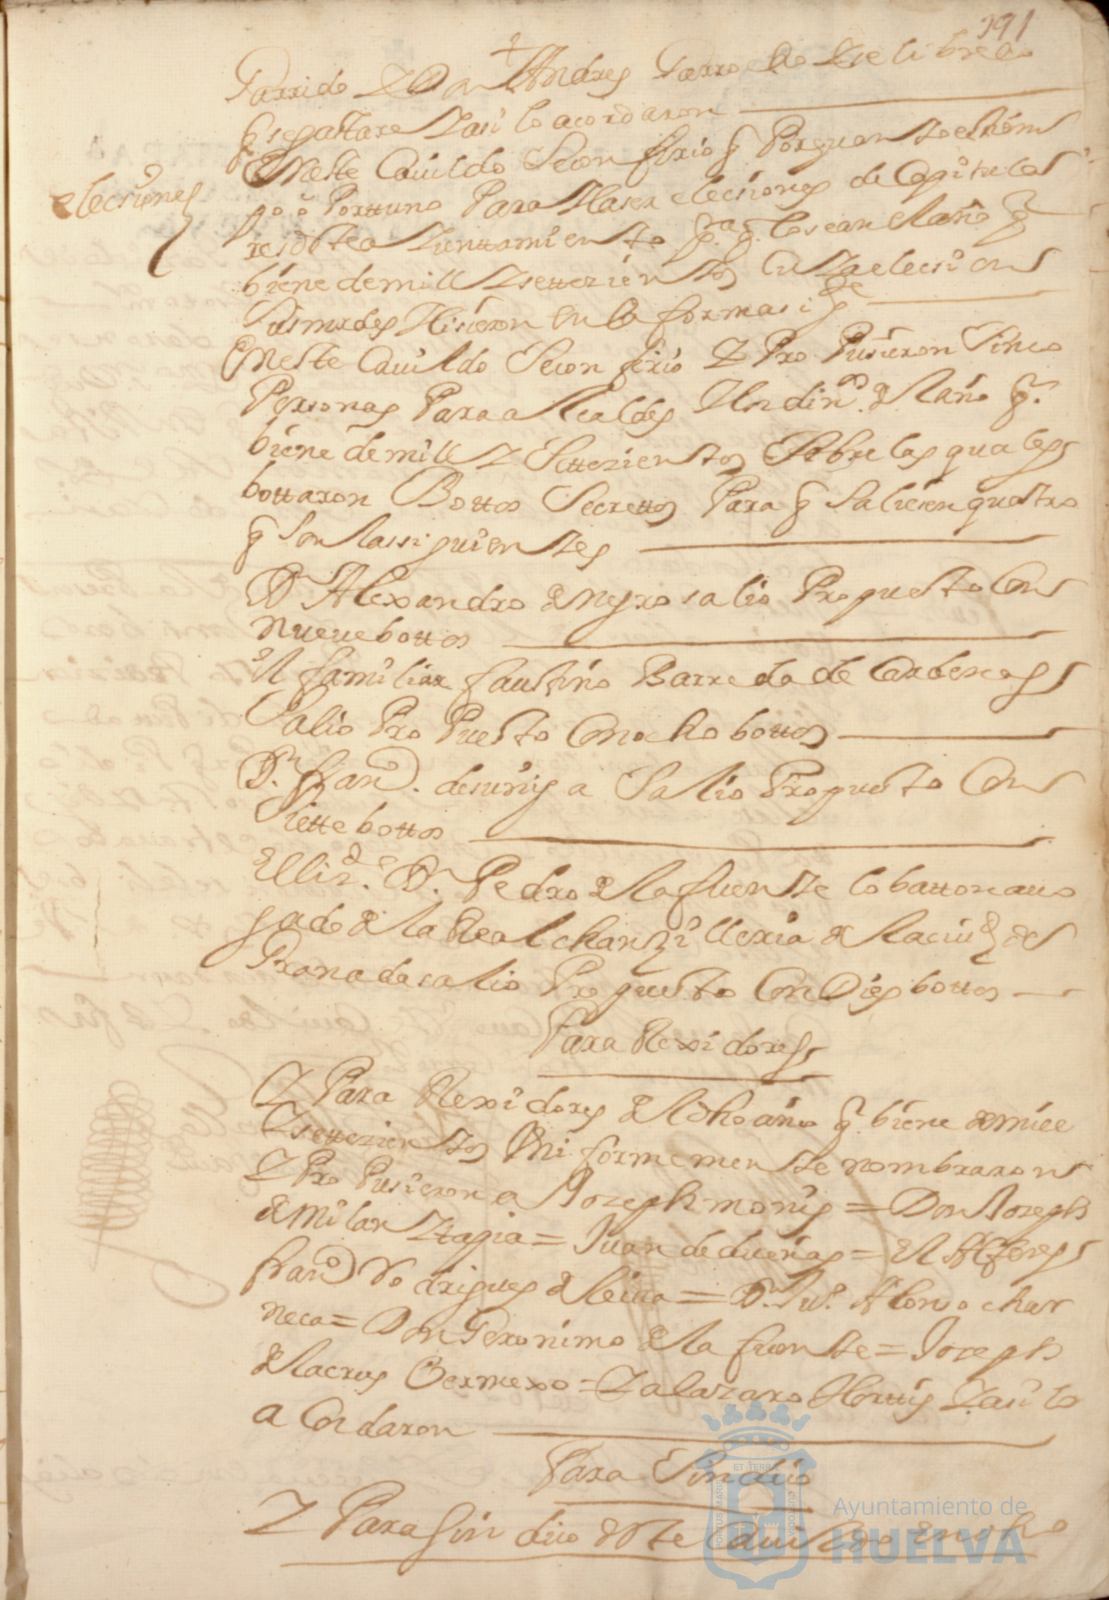 391
Garrido Y Don Andres Garrido Y se libre lo
q se gastare Y asi lo acordaron
elecsiones
En este Cavildo Se confirio q Por quanto es tiem
po oporttuno Para Haser elecsiones de Capitulares
res de este a Yunttamiento pa. q. lo sean el año q
biene de mill Y settezientos Cu Ya elecsion
Sus mrdes Hisieron en la forma sigte
En este Cavildo Se con firio Y Pro Pusieron Sinco
Personas Para a lcaldes Hordinos. del año q.
biene de mill Y Settezientos Sobre las quales
bottaron Bottos Secrettos Para q Saliesen quatro
q Son las siguientes
Dn Alexandro de negro salio Propuesto Con
nueve bottos
el familiar faustino Barreda de Cardenas
Salio Pro Puesto Con ocho bottos
Dn. franco. de suñiga Salio Propuesto Con
Siette bottos
el lizdo. Dn. Pedro de la fuente lobatton abo
gado de la Real chanzilleria de la ciud de
Granada salio Propuesto Con Dies bottos
Para Rexidores
Y Para Rexidores del dho año q. biene de mill
Y settezientos Uni formemente nombraron
Y Pro Pusieron a Joseph monis = Don Joseph
de milan Y tapia = Juan de dueñas = el Alferes
franco Rodrigues de leiva = Dn. Ju. Alonso char
neca = Don Geronimo de la fuente = Joseph
de la crus Bermexo = Y a lazaro Horttis Y asi lo
a Cordaron
Para Sindico
Y Para Sindico de este Cavildo en dho
Ayuntamiento de
HUELVA